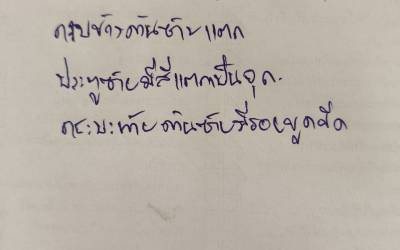 ครบข้างด้านซ้ายแตก
ประตูซ้ายมีสีแตกเป็นจุด.
กระบะท้ายด้านซ้ายมีรอยขูดขีด